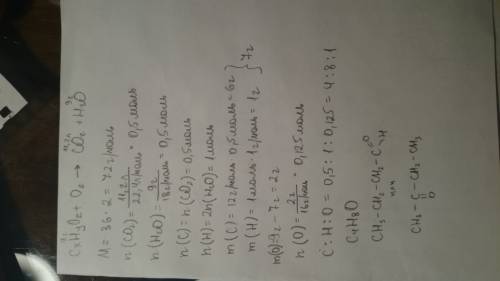 11,2л 9г
CxHyOz + O₂ → CO₂ + H₂O
M = 36 · 2 = 72 г/моль
n(CO₂) = 11,2 л / 22,4 л/моль = 0,5 моль
n(H₂O) = 9г / 18 г/моль = 0,5 моль
n(C) = n(CO₂) = 0,5 моль
n(H) = 2n(H₂O) = 1 моль
m(C) = 12 г/моль · 0,5 моль = 6г
m(H) = 1 моль · 1 г/моль = 1г } 7г
m(O) = 9г - 7г = 2г
n(O) = 2г / 16 г/моль = 0,125 моль
C : H : O = 0,5 : 1 : 0,125 = 4 : 8 : 1
C₄H₈O
CH₃-CH₂-CH₂-C=O
H
или
CH₃-C-CH₂-CH₃
O